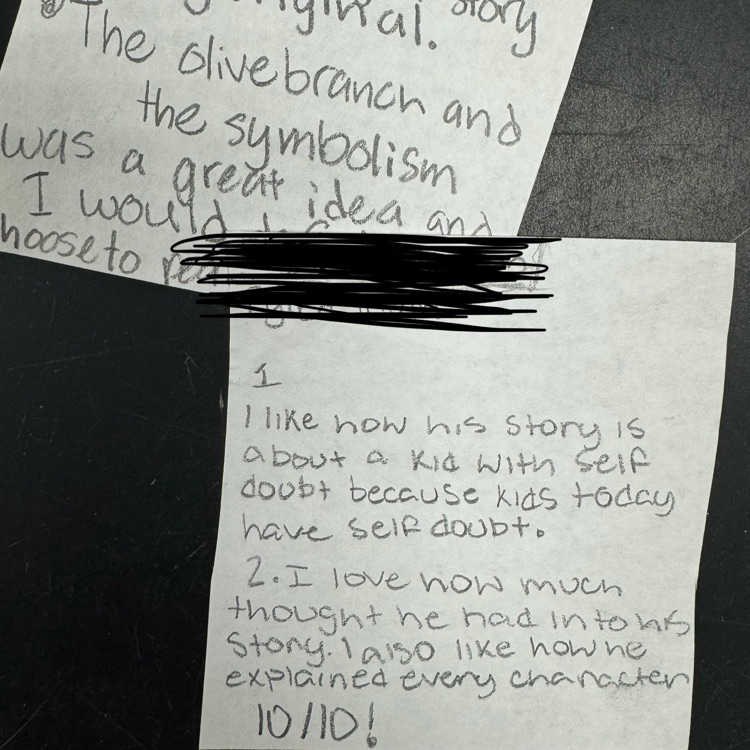 story
original.
The olive branch and
the symbolism
was a great idea and
I would
hoose to
1
I like how his story is
about a kid with self
doubt because kids today
have self doubt.
2. I love how much
thought he had in to his
story. I also like how he
explained every character
10/10!